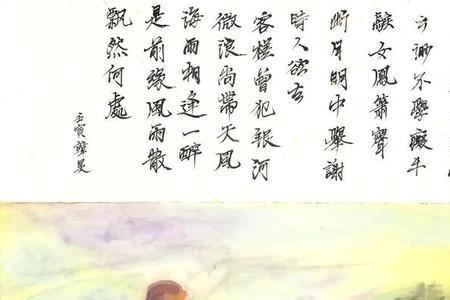 云渺不學癡牛
騃女鳳簫聲
斷月明中舉謝
時人欲去
客槎曾犯銀河
微浪尚帶天風
海雨相逢一醉
是前緣風雨散
飄然何處
壬寅